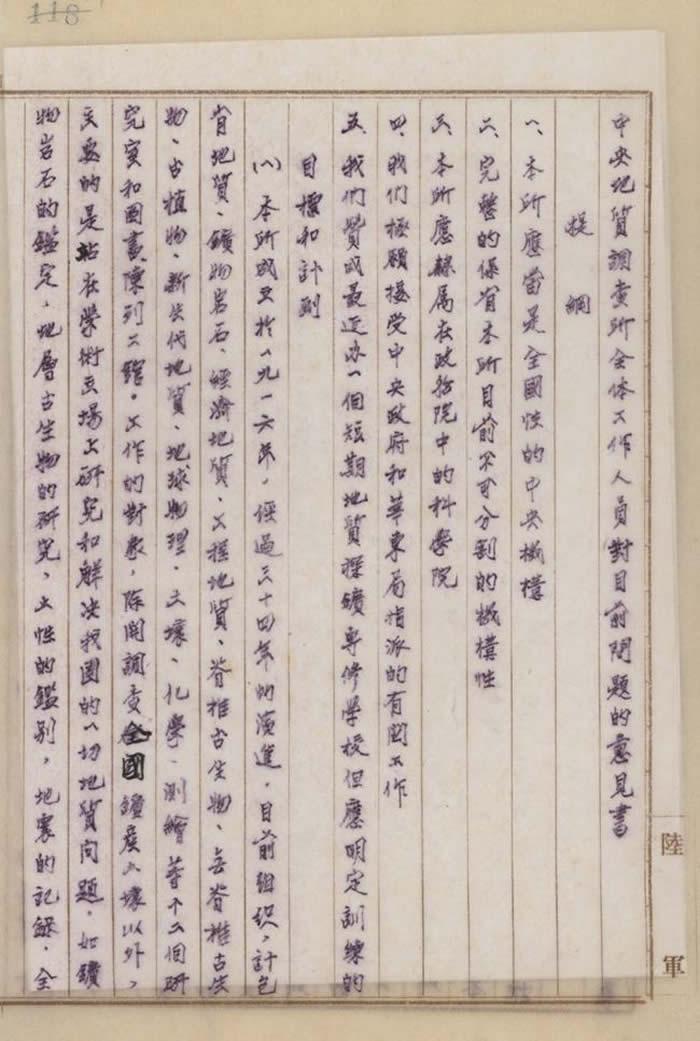 118
中央地質調查所全体工作人員對目前問題的意見書
提綱
一、本所應當是全國性的中央機構
二、完整的保有本所目前不可分割的機構性
三、本所應隸属在政務院中的科學院
四、我們極願接受中央政府和華東局指派的有関工作
五、我們贊成最近办一個短期地質探鑛專修學校但應明定訓練的
目標和計划
(一)本所成立於一九一六年,經過三十四年的演進,目前組织,計包
省地質、鑛物岩石、經濟地質、工程地質、脊椎古生物、無脊椎古生
物、古植物、新生代地質、地球物理、土壤、化學、測繪等十二個研
究室和圖書陳列二舘。工作的對象,除開調查全國鑛產土壤以外,
主要的是站在學術立場上研究和解决我國的一切地質問題,如鑛
物岩石的鑑定,地層古生物的研究,土性的鑑别,地震的記錄,全
陸軍